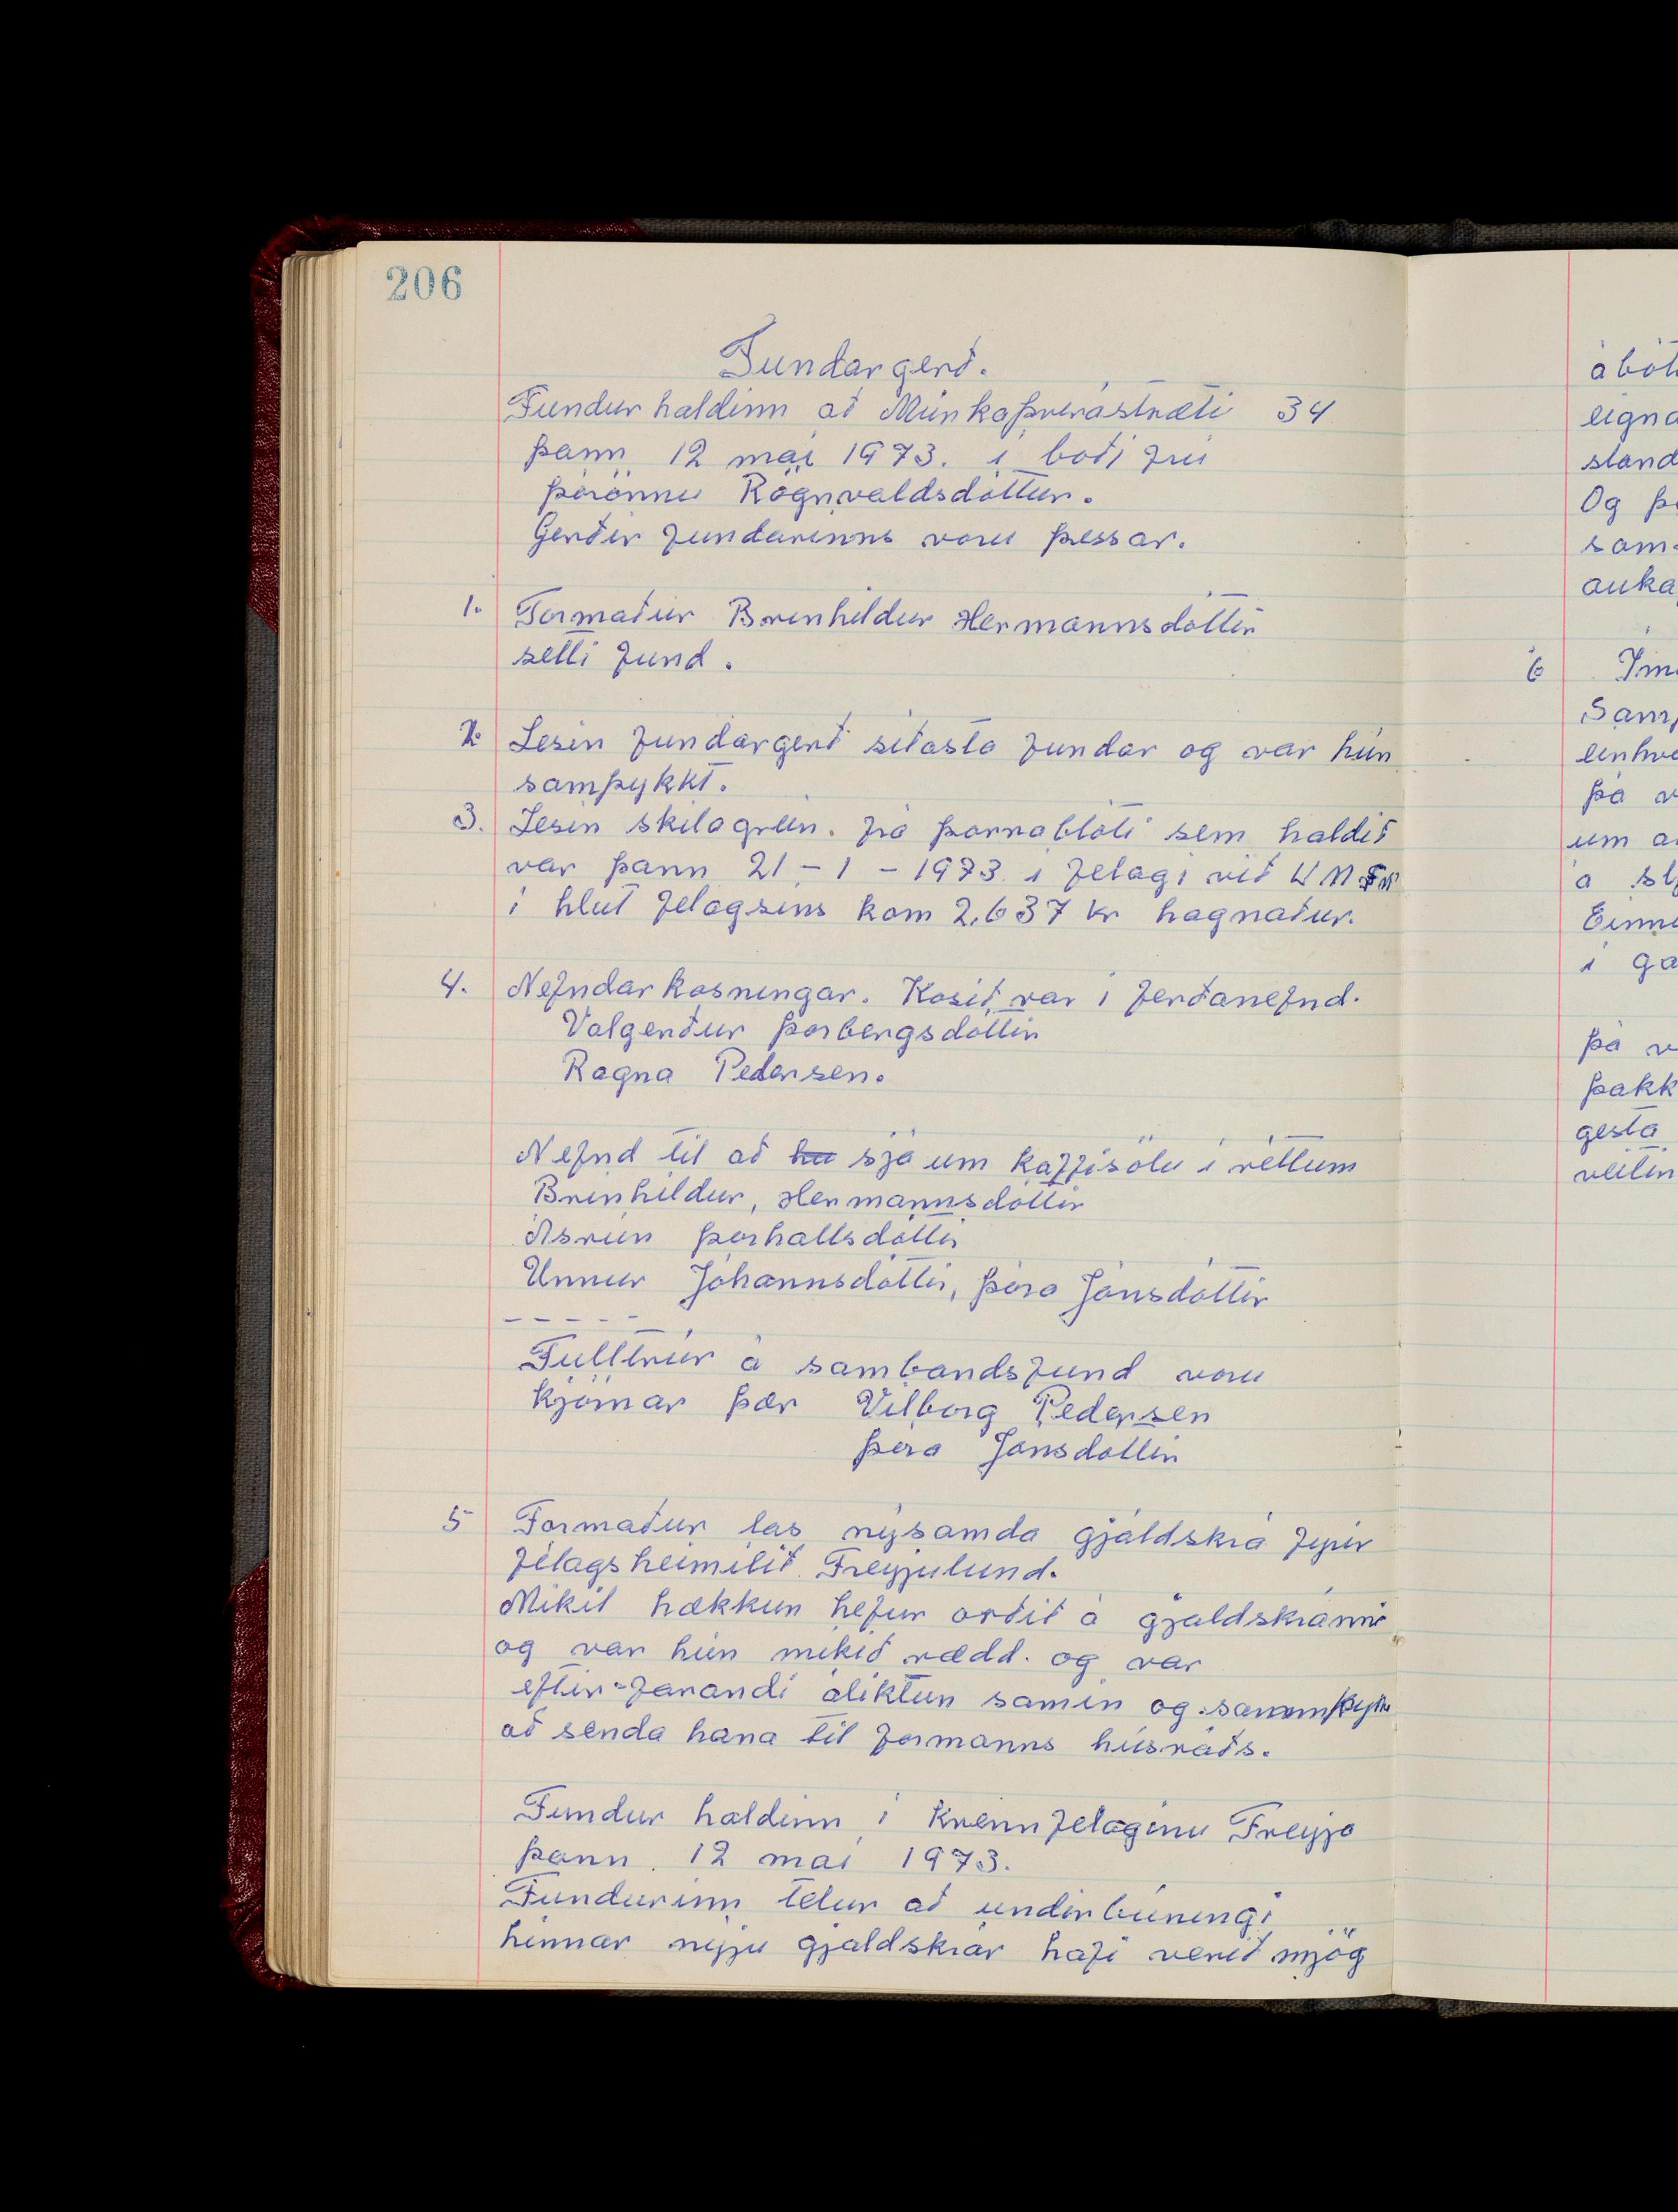 206
Fundargerð.
Fundur haldinn að Múnkaþverástræti 34
þann 12 maí 1973. í boði frú
Þórönnu Rögnvaldsdóttur.
Gerðir fundarinns voru þessar.
1. Formaður Brinhildur Hermannsdóttir
setti fund.
2. Lesin fundargerð síðasta fundar og var hún
samþykkt.
3. Lesin skilagrein. frá þorrablóti sem haldið
var þann 21-1-1973 í félagi við U M
í hlut félagsins kom 2.637 kr hagnaður.
4. Nefndarkosningar. Kosið var í ferðanefnd.
Valgerður Þorbergsdóttir
Ragna Pedersen.
Nefnd til að sjá um kaffisölu í réttum
Brinhildur, Hermannsdóttir
Ásrún Þórhallsdóttir
Unnur Jóhannsdóttir, Þóra Jónsdóttir
- - - - -
Fulltrúr á sambandsfund voru
kjörnar þær Vilborg Pedersen
Þóra Jónsdóttir
5 Formaður las nýsamda gjaldskrá fyrir
félagsheimilið Freyjulund.
Mikil hækkun hefur orðið á gjaldskránni
og var hún mikið rædd. og var
eftir-farandi áliktun samin og
að senda hana til formanns húsráðs.
Fundur haldinn í kvennfélaginu Freyja
þann 12 maí 1973.
Fundurinn telur að undirbúningi
hinnar nýju gjaldskrár hafi verið mjög
eigna
Og
auka
6
þá
um
á
í
þá
þakk
gesta